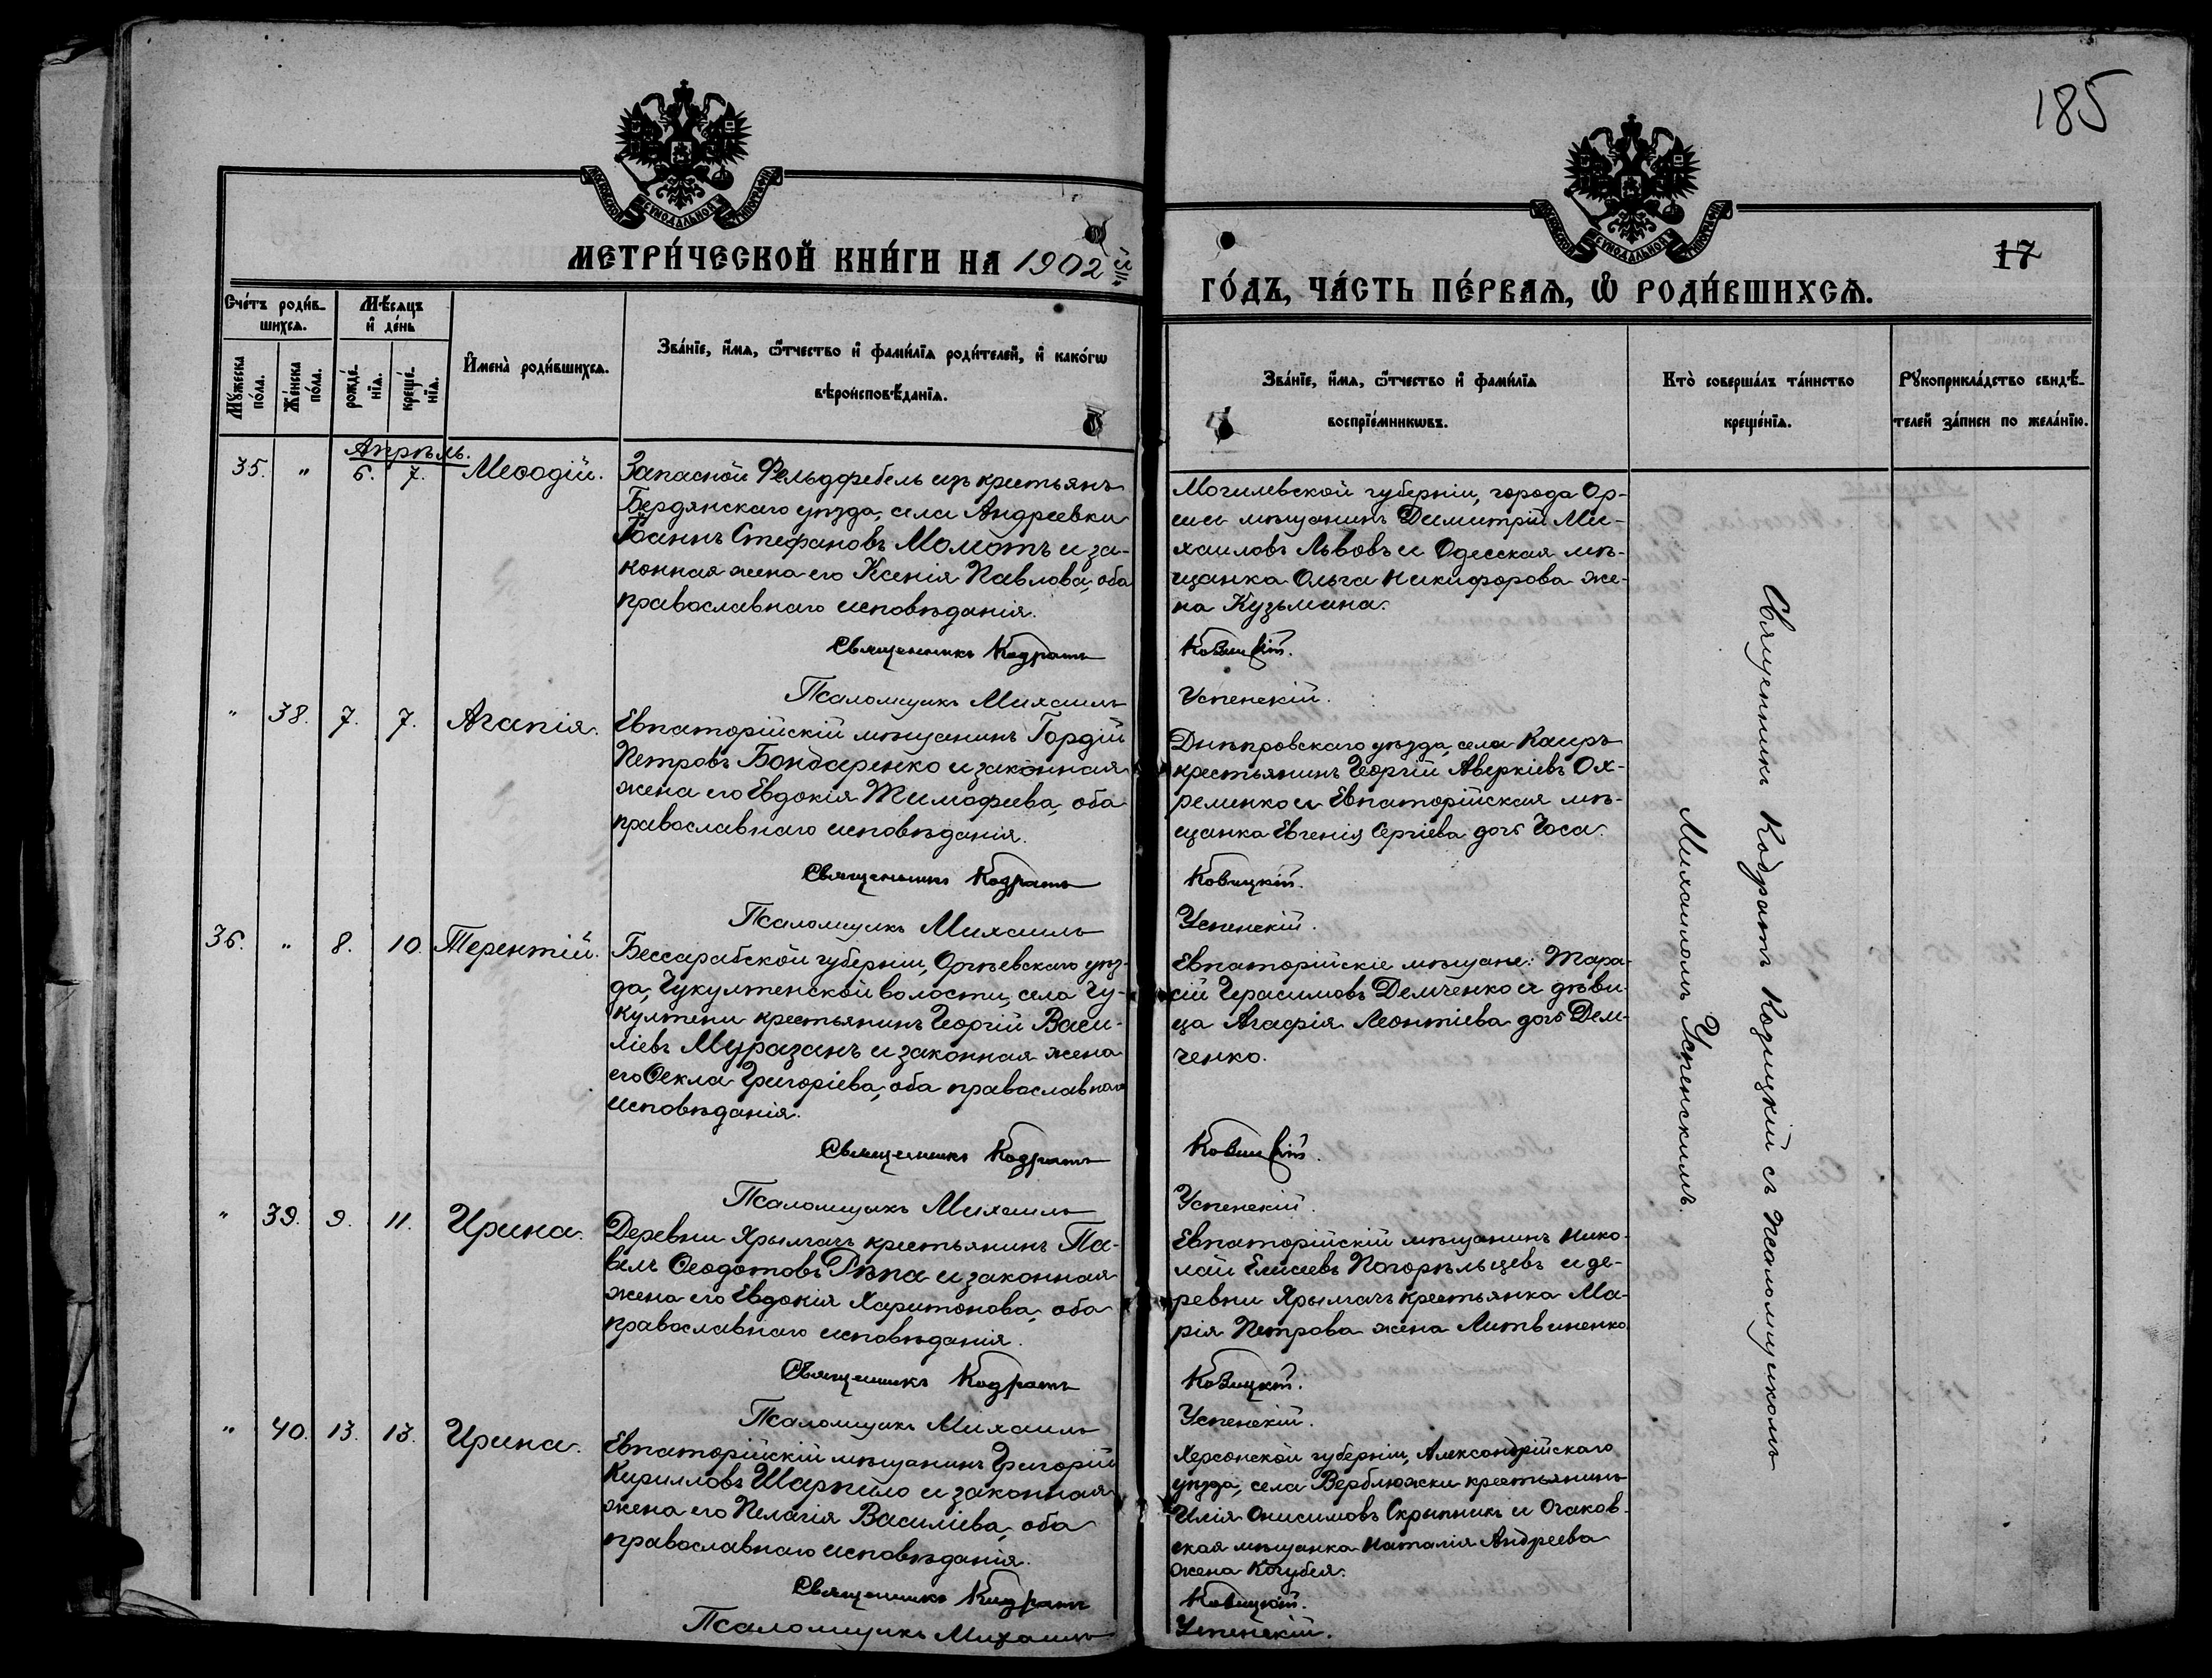 185
МЕТРИ́ЧЕСКОЙ КНИ́ГИ НА 1902й
ГО́ДЪ, ЧА́СТЬ ПЕ́РВАѦ, Ѡ РОДИ́ВШИХСѦ.
17
Сче́тъ роди́в-
шихсѧ.
Мѣ́сѧцъ
и҆ де́нь
И҆мена̀ роди́вшихсѧ.
Зва́нїе, и҆́мѧ, ѻ҆́тчество и҆ фами́лїѧ роди́телей, и҆ како́гѡ
вѣроисповѣ́данїѧ.
Мꙋ́жеска
по́ла.
Же́нска
по́ла.
рожде́-
нїѧ.
креще́-
нїѧ.
Зва́нїе, и҆́мѧ, ѻ҆́тчество и҆ фами́лїѧ
воспрїе́мникѡвъ.
Кто̀ соверша́лъ та́инство
креще́нїѧ.
Рꙋкоприкла́дство свидѣ́-
телей за́писи по жела́нїю.
Апрѣль.
35. " 6. 7. Меѳодій.
Запасной Фельдфебель изъ крестьянъ
Бердянскаго уѣзда, села Андреевки
Іоаннъ Стефановъ Момотъ и за-
конная жена его Ксенія Павлова, оба
православнаго исповѣданія.
Священникъ Кодратъ
Псаломщикъ Михаилъ
Могилевской губерніи, города Ор-
ши мѣщанинъ Димитрій Ми-
хаиловъ Львовъ и Одесская мѣ-
щанка Ольга Никифорова же-
на Кузьмина.
Козицкій.
Успенскій.
" 38. 7. 7. Агапія.
Евпаторійскій мѣщанинъ Гордій
Петровъ Бондаренко и законная
жена его Евдокія Тимофеева, оба
православнаго исповѣданія.
Священникъ Кодратъ
Псаломщикъ Михаилъ
Днѣпровскаго уѣзда, села Каиръ
крестьянинъ Георгій Аверкіевъ Ох-
ременко и Евпаторійская мѣ-
щанка Евгенія Сергіева дочь Чоса.
Козицкій.
Успенскій.
36. " 8. 10. Терентій.
Бессарабской губерніи, Оргѣевскаго уѣз-
да, Чукултенской волости, села Чу-
култени крестьянинъ Георгій Васи-
ліевъ Муразанъ и законная жена
его Ѳекла Григоріева, оба православнаго
исповѣданія.
Священникъ Кодратъ
Псаломщикъ Михаилъ
Евпаторійскіе мѣщане: Тара-
сій Герасимовъ Демченко и дѣви-
ца Агафія Леонтіева дочь Дем-
ченко.
Козицкій.
Успенскій.
" 39. 9. 11. Ирина.
Деревни Ярылгачъ крестьянинъ Па-
велъ Ѳеодотовъ Рѣпа и законная
жена его Евдокія Харитонова, оба
православнаго исповѣданія.
Священникъ Кодратъ
Псаломщикъ Михаилъ
Евпаторійскій мѣщанинъ Нико-
лай Елисеевъ Погорѣльцевъ и де-
ревни Ярылгачъ крестьянка Ма-
рія Петрова жена Литвиненко
Козицкій.
Успенскій.
" 40. 13. 13. Ирина.
Евпаторійскій мѣщанинъ Григорій
Кирилловъ Шарпило и законная
жена его Пелагія Василіева, оба
православнаго исповѣданія.
Священникъ Кодратъ
Псаломщикъ Михаилъ
Херсонской губерніи, Александрійскаго
уѣзда, села Верблюжки крестьянинъ
Илія Онисимовъ Скрыпникъ и Очаков-
ская мѣщанка Наталія Андреева
жена Кочубея.
Козицкій.
Успенскій.
Священникъ Кодратъ Козицкій съ псаломщикомъ
Михаиломъ Успенскимъ.